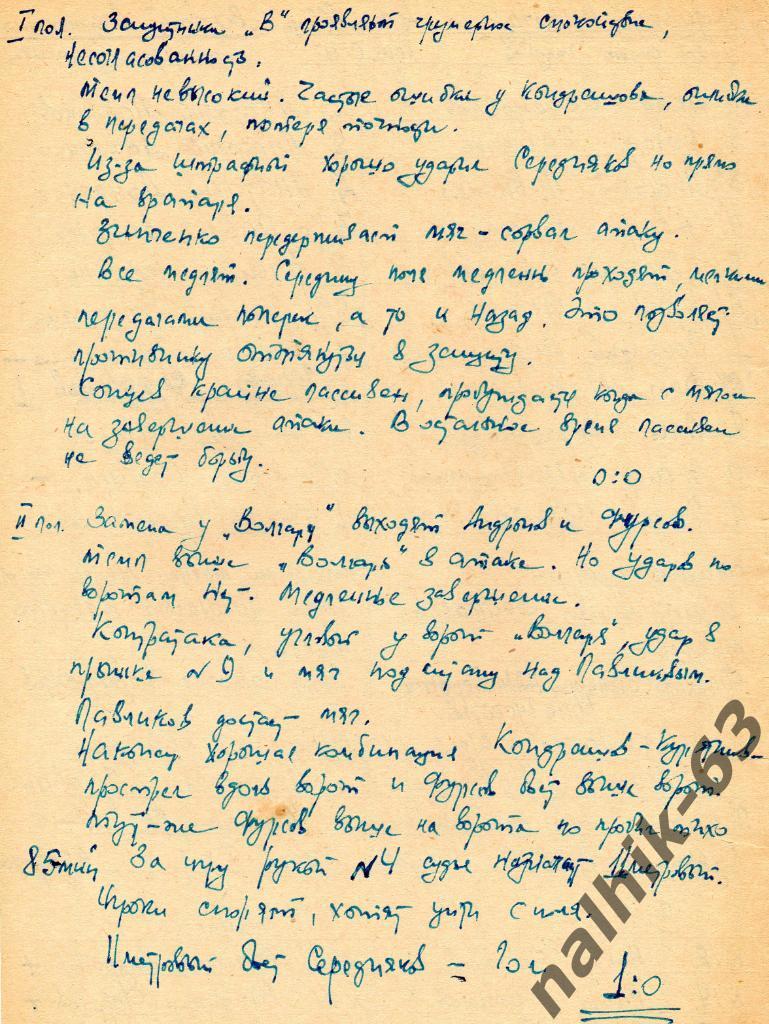 I пол. Защитники „В" проявляют чрезмерное спокойствие,
несогласованность.
Темп невысокий. Частые ошибки у Кондрашова, ошибки
в передачах, потеря
Из-за штрафной хорошо ударил Середняков но прямо
на вратаря.
Зинченко передерживает мяч – сорвал атаку.
Все медлят. Середину поля медленно проходят, мелкими
передачами поперек, а то и назад. Это позволяет
противнику оттянуться в защиту.
Сонцев крайне пассивен, пробуждается когда с мячом
на завершении атаки. В остальное время пассивен
не ведет борьбу.
0:0
II пол. Замена у „Волгаря" выходят Андронов и Фурсов.
Темп выше „Волгарь" в атаке. Но ударов по
воротам нет. Медленные завершения.
Контратака, угловой у ворот „Волгаря", удар в
прыжке №9 и мяч под штангу над Павликовым.
Павликов достает мяч.
Наконец хорошая комбинация Кондрашов –
прострел вдоль ворот и Фурсов бьет выше ворот.
Тут-же Фурсов выше на ворота но пробил плохо
85 мин За игру рукой №4 судья назначает 11 метровый.
Игроки спорят, хотят уйти с поля.
11 метровый бьет Середняков – гол.
1:0
nalhik-63